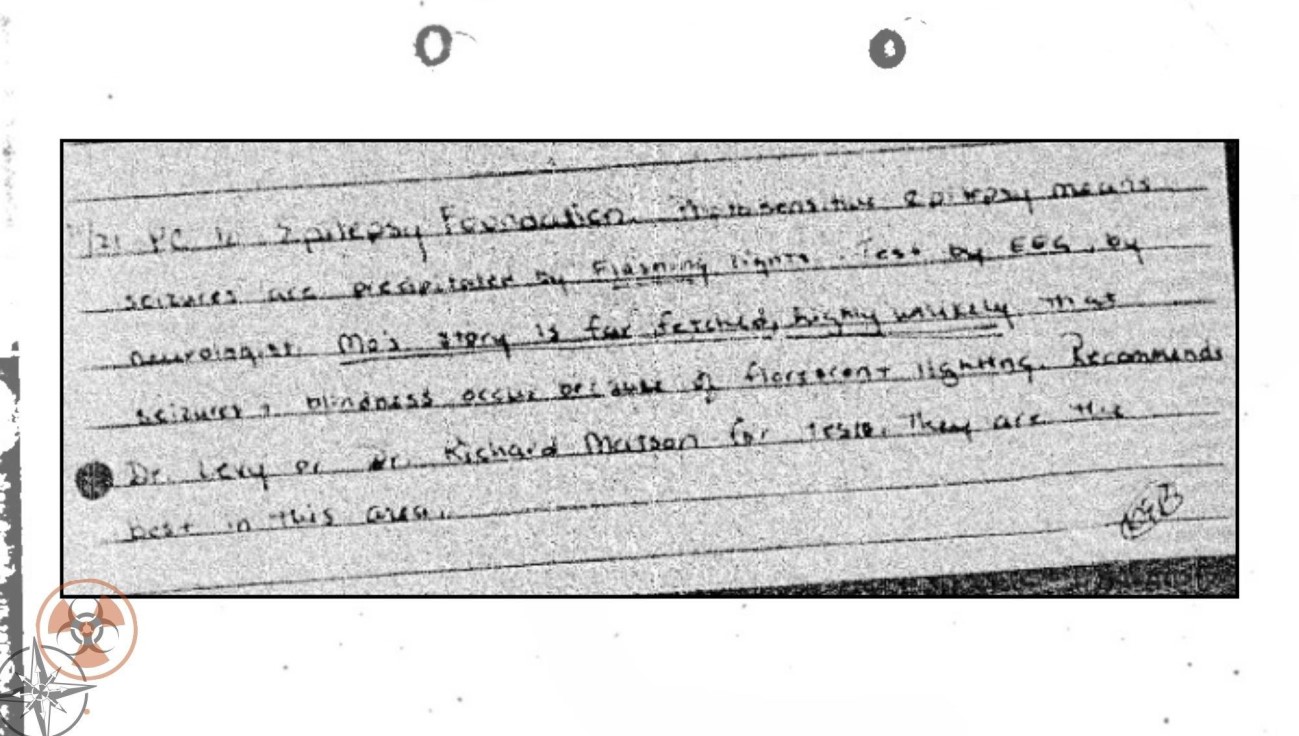 /21 PC to Epilepsy Foundation. Photosensitive epilepsy means
seizures are precipitated by flashing lights. Test by EEG, by
neurologist. Mo's story is far fetched, highly unlikely that
seizures + blindness occur because of florescent lighting. Recommends
Dr. Levy or Dr. Richard for tests. They are the
best in this area.